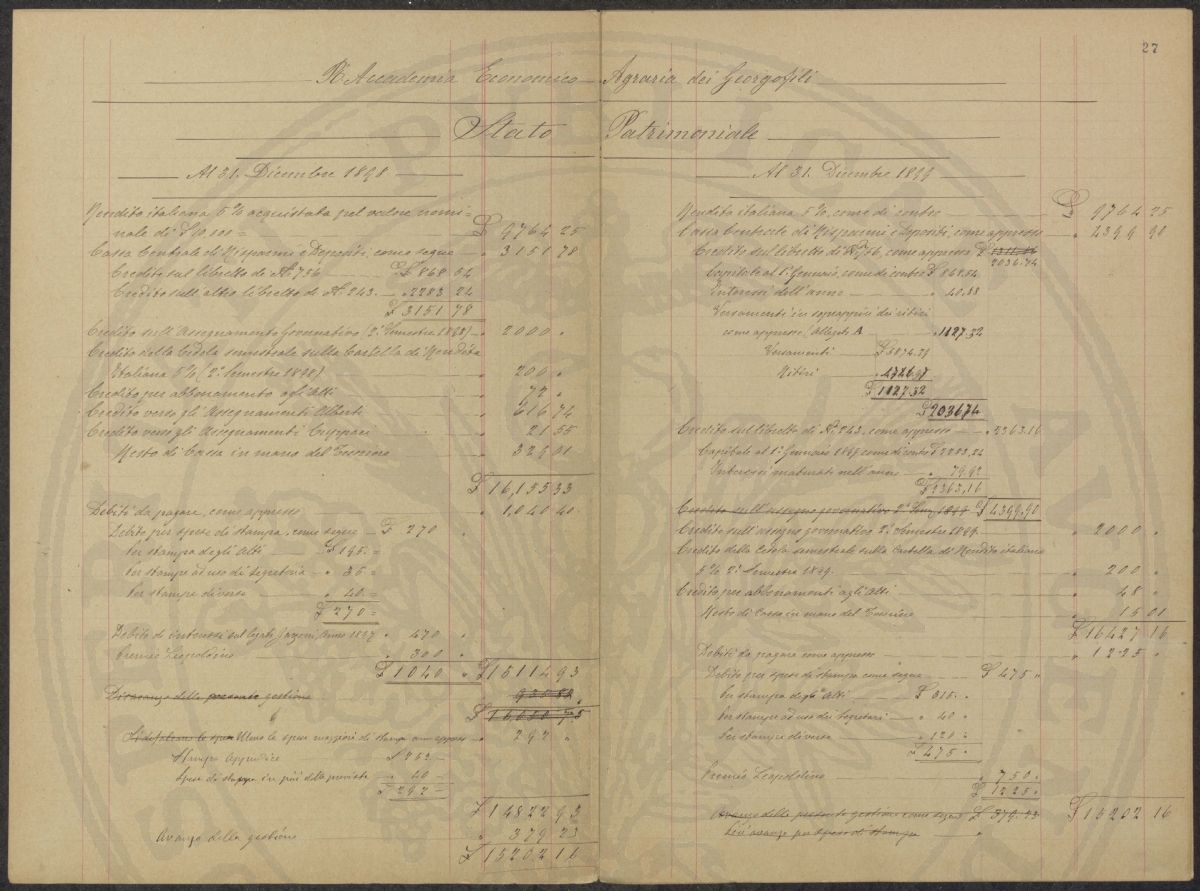 27
R. Accademia Economico-Agraria dei Georgofili
Stato Patrimoniale
Al 31. Dicembre 1898
Rendita italiana 5% acquistata pel valore nomi=
nale di £ 10.100= £ 9764 25
Cassa Centrale di Risparmi e Depositi, come segue " 3151 78
Credito sul libretto di N. 756 £ 868 54
Credito sull'altro libretto di N. 243. " 2283 24
£ 3151 78
Credito sull'Assegnamento Governativo (2° Semestre 1898) " 2000 "
Credito della Cedola semestrale sulla Cartella di Rendita
Italiana 5% (2° Semestre 1898) " 200 "
Credito per abbonamento agli Atti " 72 "
Credito verso gli Assegnamenti Alberti " 616 74
Credito verso gli Assegnamenti Cuppari " 21 55
Resto di Cassa in mano del Tesoriere " 329 01
£ 16,155 33
Debiti da pagare, come appresso " 1,040 40
Debito per spese di stampa, come segue £ 270
Per stampa degli Atti £ 195. =
Per stampe ad uso di Segreteria " 35 =
Per stampe diverse " 40 =
£ 270 =
Debito di interessi sul legato anno 1897 " 470 "
Premio Leopoldino " 300 "
£ 1040 " £ 15114 93
Disavanzo della presente gestione
Meno le spese maggiori di stampa come appresso " 292 "
Stampa Appendice £ 252 -
Spese di stampa in più della prevista " 40 -
£ 292 =
£ 14822 93
Avanzo della gestione " 379 23
£ 15202 16
Al 31. Dicembre 1899
Rendita italiana 5%, come di contro £ 9764 25
Cassa Centrale di Risparmi e Depositi, come appresso " 4399 90
Credito sul libretto di N. 756, come appresso £
2036.74
Capitale al 1° Gennaio, come di contro £ 868.54
Interessi dell'anno " 40.88
Versamenti in dei ritiri
come appresso (Allegato A " 1127.32
Versamenti £ 5874.29
Ritiri " 4746.97
£ 1127.32
£ 2036 74
Credito sul libretto di N. 243, come appresso " 2363.16
Capitale al 1° Gennaio 1899 come di contro £ 2283.24
Interessi maturati nell'anno " 79.92
£ 2363,16
Credito sull'assegno governativo 2° Sem. 1899 £ 4399.90
Credito sull'assegno governativo 2° Semestre 1899 " 2000 "
Credito della Cedola semestrale sulla Cartella di Rendita italiana
5% 2° Semestre 1899. " 200 "
Credito per abbonamenti agli Atti " 48 "
Resto di Cassa in mano del Tesoriere " 15 01
£ 16427 16
Debiti da pagare come appresso " 1225 "
Debito per spese di stampa come segue £ 475 "
Per stampa degli Atti £ 315. "
Per stampe ad uso dei Segretari " 40 "
Per stampe diverse " 120 "
" 475 "
Premio Leopoldino " 750 "
£ 1225 "
Avanzo della presente gestione come segue £ 379.23 £ 15202 16
avanzo per spese di stampa "